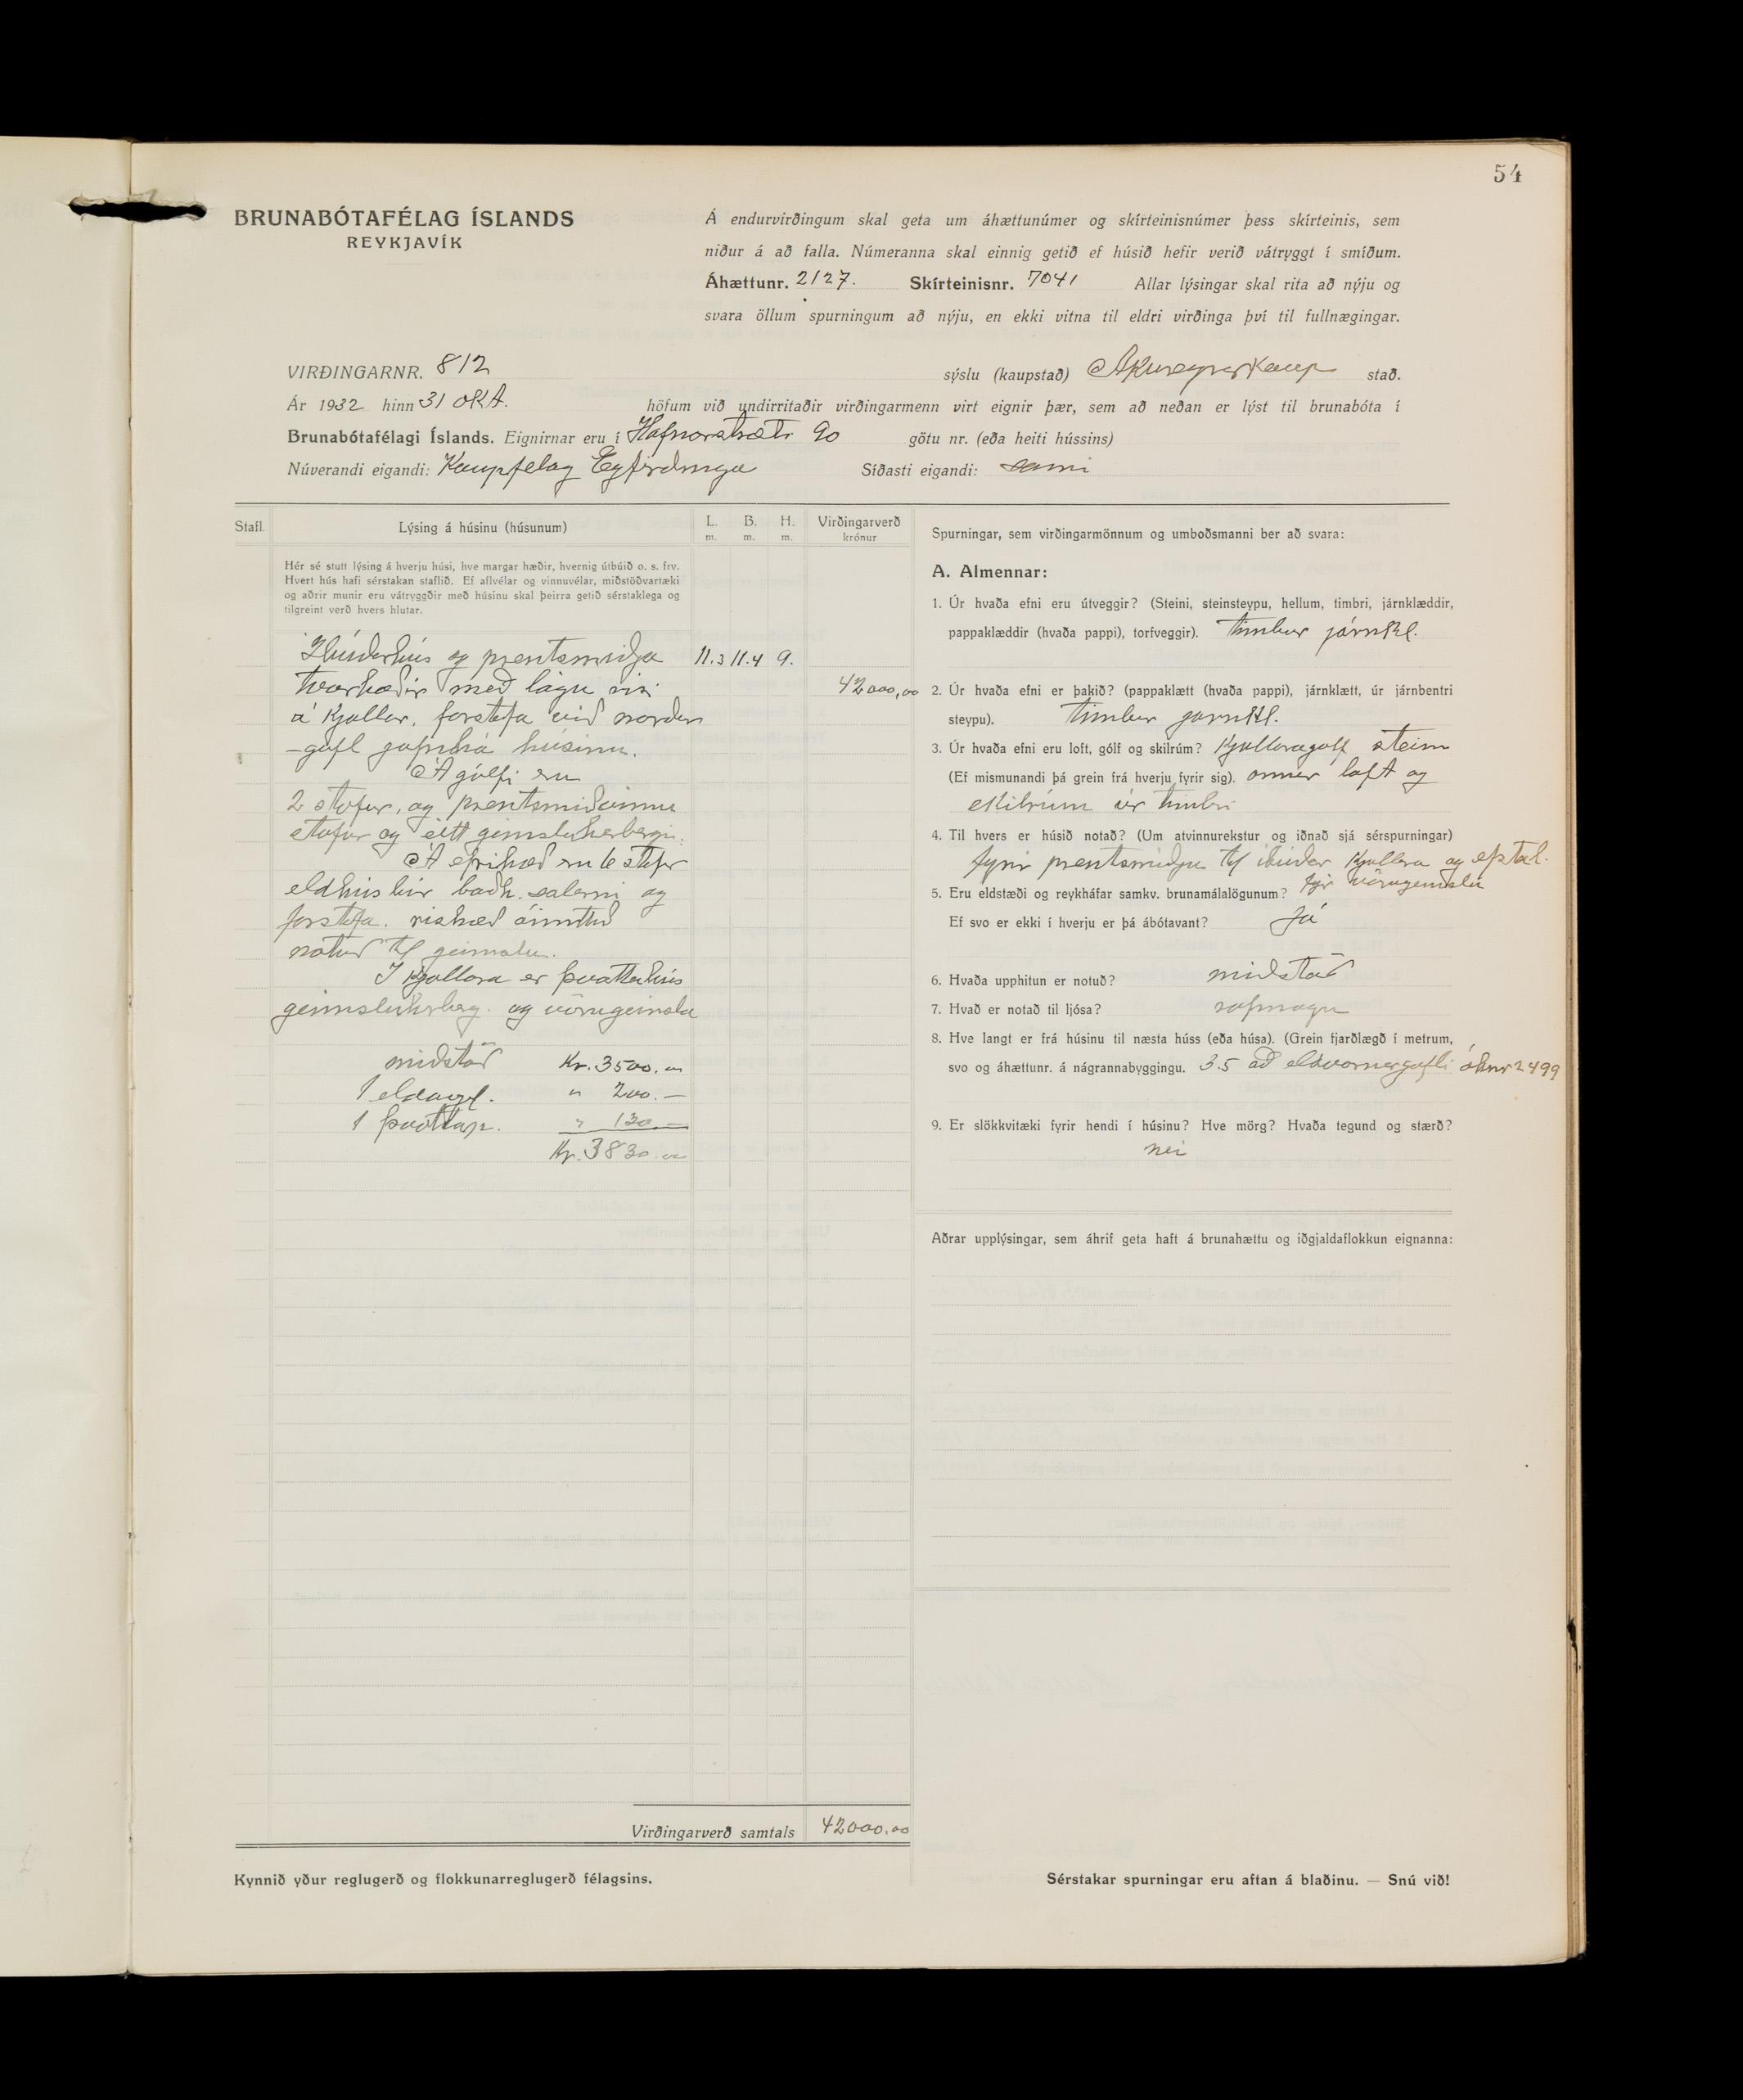 54
BRUNABÓTAFÉLAG ÍSLANDS
REYKJAVÍK
Á endurvirðingum skal geta um áhættunúmer og skírteinisnúmer þess skírteinis, sem
niður á að falla. Númeranna skal einnig getið ef húsið hefir verið vátryggt í smíðum.
Áhættunr. 2127. Skírteinisnr. 7041 Allar lýsingar skal rita að nýju og
svara öllum spurningum að nýju, en ekki vitna til eldri virðinga því til fullnægingar.
VIRÐINGARNR. 812 sýslu (kaupstað) Akureyrarkaup stað.
Ár 1932 hinn 31 okt. höfum við undirritaðir virðingarmenn virt eignir þær, sem að neðan er lýst til brunabóta í
Brunabótafélagi Íslands. Eignirnar eru í Hafnarstræti 90 götu nr. (eða heiti hússins)
Núverandi eigandi: Kaupfelag Eyfirdinga Síðasti eigandi: sami
Stafl. Lýsing á húsinu (húsunum) L. m. B. m. H. m. Virðingarverð krónur
Hér sé stutt lýsing á hverju húsi, hve margar hæðir, hvernig útbúið o. s. frv.
Hvert hús hafi sérstakan staflið. Ef aflvélar og vinnuvélar, miðstöðvartæki
og aðrir munir eru vátryggðir með húsinu skal þeirra getið sérstaklega og
tilgreint verð hvers hlutar.
Íbúðarhús og prentsmiðja 11.3 11.4 9.
tvær hæðir með lágu risi 42000,00
á kjallar, forstofa við norður
-gafl jafnhá húsinu.
Á gólfi eru
2 stofur, og prentsmiðjunnu
stofur og eitt geimsluherbergi.
Á efrihæð eru 6 stofur
eldhús búr baðh. salerni og
forstofa. rishæð óinnréttuð
notuð til geimslu.
Í kjallara er þvottahús
geimsluherberg. og vörugeimsla
miðstöð Kr. 3500.00
1 eldavél. " 200.—
1 þvottap. " 130.—
Kr. 3830.00
Virðingarverð samtals 42000.00
Spurningar, sem virðingarmönnum og umboðsmanni ber að svara:
A. Almennar:
1. Úr hvaða efni eru útveggir? (Steini, steinsteypu, hellum, timbri, járnklæddir,
pappaklæddir (hvaða pappi), torfveggir). timbur járnkl.
2. Úr hvaða efni er þakið? (pappaklætt (hvaða pappi), járnklætt, úr járnbentri
steypu). timbur jarnkl.
3. Úr hvaða efni eru loft, gólf og skilrúm? Kjallaragolf steinn
(Ef mismunandi þá grein frá hverju fyrir sig). önnur loft og
skilrúm úr timbri
4. Til hvers er húsið notað? (Um atvinnurekstur og iðnað sjá sérspurningar)
fyrir prentsmiðju til íbúðar kjallara og
fyr vörugeimslu
5. Eru eldstæði og reykháfar samkv. brunamálalögunum?
Ef svo er ekki í hverju er þá ábótavant? Já
6. Hvaða upphitun er notuð? miðstöð
7. Hvað er notað til ljósa? rafmagn
8. Hve langt er frá húsinu til næsta húss (eða húsa). (Grein fjarðlægð í metrum,
svo og áhættunr. á nágrannabyggingu. 3.5 að eldvornargafli áhnr 2499
9. Er slökkvitæki fyrir hendi í húsinu? Hve mörg? Hvaða tegund og stærð?
nei
Aðrar upplýsingar, sem áhrif geta haft á brunahættu og iðgjaldaflokkun eignanna:
Kynnið yður reglugerð og flokkunarreglugerð félagsins.
Sérstakar spurningar eru aftan á blaðinu. — Snú við!